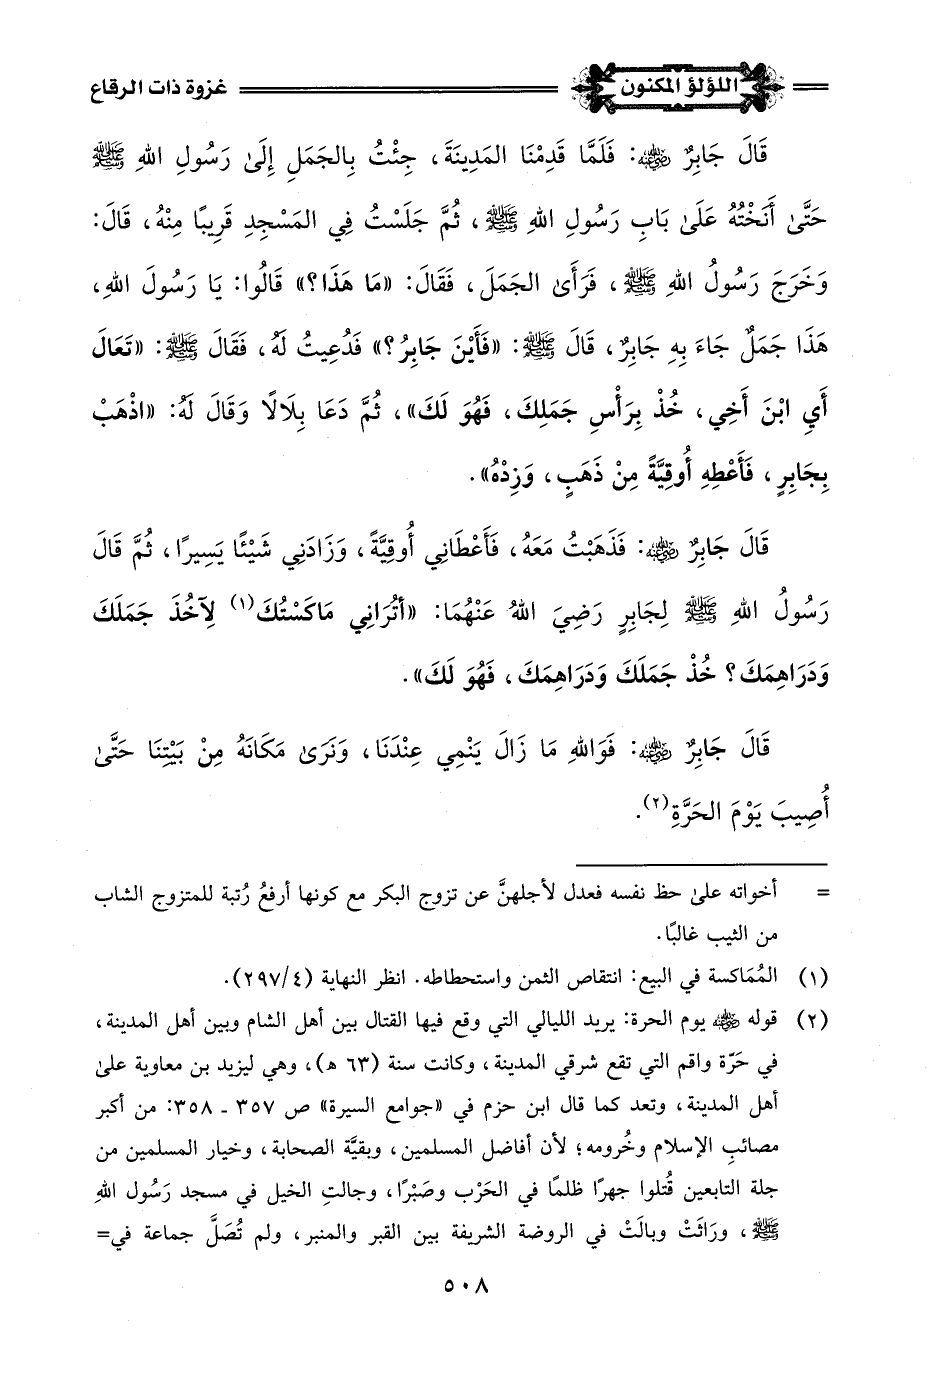 اللؤلؤ المكنون
غزوة ذات الرقاع
قَالَ جَابِرٌ رضي الله عنه: فَلَمَّا قَدِمْنَا المَدِينَةَ، جِئْتُ بِالجَمَلِ إِلَىٰ رَسُولِ اللهِ ﷺ
حَتَّىٰ أَنَخْتُهُ عَلَىٰ بَابِ رَسُولِ اللهِ ﷺ، ثُمَّ جَلَسْتُ فِي المَسْجِدِ قَرِيبًا مِنْهُ، قَالَ:
وَخَرَجَ رَسُولُ اللهِ ﷺ، فَرَأَىٰ الجَمَلَ، فَقَالَ: «مَا هَذَا؟» قَالُوا: يَا رَسُولَ اللهِ،
هَذَا جَمَلٌ جَاءَ بِهِ جَابِرٌ، قَالَ ﷺ: «فَأَيْنَ جَابِرُ؟» فَدُعِيتُ لَهُ، فَقَالَ ﷺ: «تَعَالَ
أَيِ ابْنَ أَخِي، خُذْ بِرَأْسِ جَمَلِكَ، فَهُوَ لَكَ»، ثُمَّ دَعَا بِلَالًا وَقَالَ لَهُ: «اذْهَبْ
بِجَابِرٍ، فَأَعْطِهِ أُوقِيَّةً مِنْ ذَهَبٍ، وَزِدْهُ».
قَالَ جَابِرٌ رضي الله عنه: فَذَهَبْتُ مَعَهُ، فَأَعْطَانِي أُوقِيَّةً، وَزَادَنِي شَيْئًا يَسِيرًا، ثُمَّ قَالَ
رَسُولُ اللهِ ﷺ لِجَابِرٍ رَضِيَ اللهُ عَنْهُمَا: «أَتُرَانِي مَاكَسْتُكَ(١) لِآخُذَ جَمَلَكَ
وَدَرَاهِمَكَ؟ خُذْ جَمَلَكَ وَدَرَاهِمَكَ، فَهُوَ لَكَ».
قَالَ جَابِرٌ رضي الله عنه: فَوَاللهِ مَا زَالَ يَنْمِي عِنْدَنَا، وَنَرَىٰ مَكَانَهُ مِنْ بَيْتِنَا حَتَّىٰ
أُصِيبَ يَوْمَ الحَرَّةِ(٢).
= أخواته علىٰ حظ نفسه فعدل لأجلهنَّ عن تزوج البكر مع كونها أرفعُ رُتبة للمتزوج الشاب
من الثيب غالبًا.
(١) المُمَاكسة في البيع: انتقاص الثمن واستحطاطه. انظر النهاية (٤/٢٩٧).
(٢) قوله رضي الله عنه يوم الحرة: يريد الليالي التي وقع فيها القتال بين أهل الشام وبين أهل المدينة،
في حَرّة واقم التي تقع شرقي المدينة، وكانت سنة (٦٣ هـ)، وهي ليزيد بن معاوية علىٰ
أهل المدينة، وتعد كما قال ابن حزم في «جوامع السيرة» ص ٣٥٧ ـ ٣٥٨: من أكبر
مصائبِ الإسلام وخُرومه؛ لأن أفاضل المسلمين، وبقيَّة الصحابة، وخيار المسلمين من
جلة التابعين قُتلوا جهرًا ظلمًا في الحَرْب وصَبْرًا، وجالتِ الخيل في مسجد رَسُول اللهِ
ﷺ، ورَاثَتْ وبالَتْ في الروضة الشريفة بين القبر والمنبر، ولم تُصَلَّ جماعة في=
٥٠٨